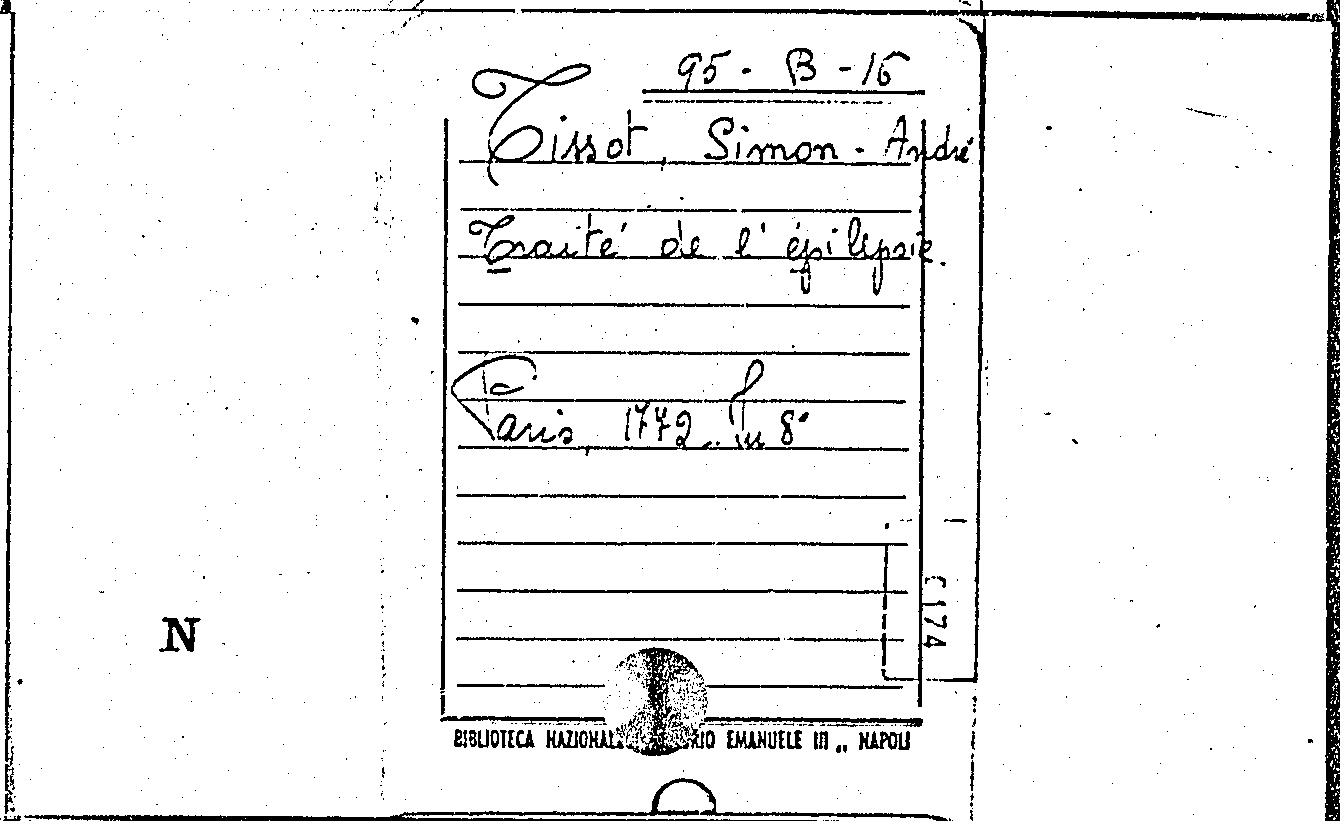 95 - B - 15
Tissot, Simon - André
Traité de l' épilepsie.
Paris, 1772. In 8°
N
C 174
BIBLIOTECA NAZIONALE EMANUELE III „ NAPOLI